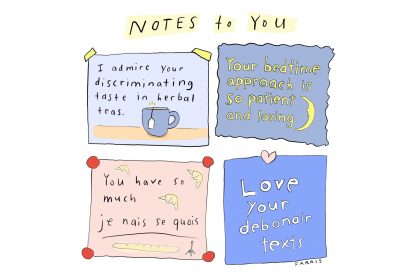 NOTES to YOU
I admire your
discriminating
taste in herbal
teas.
Your bedtime
approach is
so patient
and loving
You have so
much
je nais se quois
Love
your
debonair
texts
FARRIS